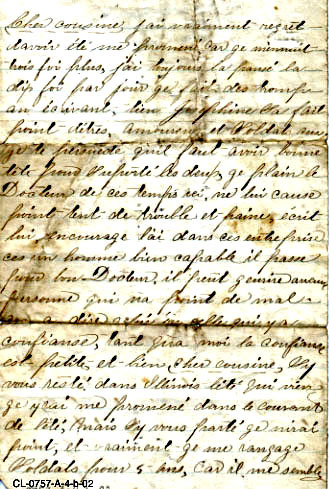 Cher cousine, j'ai vraiment regret
d'avoir été me promené car ge m'ennuit
trois foi plus, j'ai toujours la pansé la
dis foi par jour ge fait des trompe
an écrivant, bien Josephine Ha fait
point d'être amoureuse et Voldat
ge te persuade qu'il faut avoir bonne
tête pour suporté les deux, ge plain le
Docteur de ces temps ici, ne lui cause
point tent de trouble et paine, ecrit
lui encourage l'ai dans ces entreprise
ces un homme bien capable il passe
pour bon Docteur, il peut generire aucune
personne qui na point de mal
on a dire celui qui y a
confianse, tant qua moi la confianse
est petite, et bien cher cousine, sy
vous resté dans Illinois l'été qui vien
ge yrai me promené dans le courant
de l'été, mais sy vous parté ge nirai
point, et vraiment ge me rangage
Voldats pour 5 ans, car il me semble
CL-0757-A-4-b-02